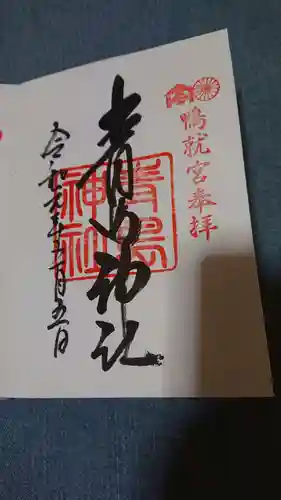 鴨就宮奉拝
青島神社
青島
神社
令和年五月五日